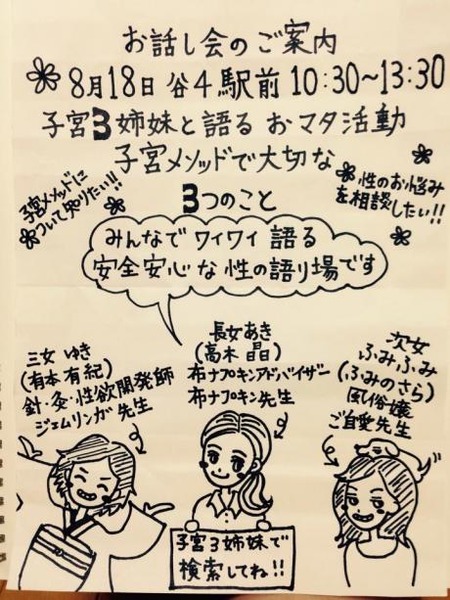 お話し会のご案内
8月18日 谷4駅前 10:30~13:30
子宮3姉妹と語る おマタ活動
子宮メソッドで大切な
3つのこと
子宮メソッドに
ついて知りたい!!
性のお悩み
を相談したい!!
みんなでワイワイ語る
安全安心な性の語り場です
三女 ゆき
(有本 有紀)
針・灸・性欲開発師
ジェムリンガ先生
長女あき
(高木 晶)
布ナプキンアドバイザー
布ナプキン先生
次女
ふみふみ
(ふみのさら)
風俗嬢
ご自愛先生
子宮3姉妹で
検索してね!!